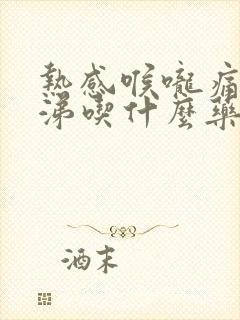 熱感喉嚨痛
涕喫什麼藥
酒末